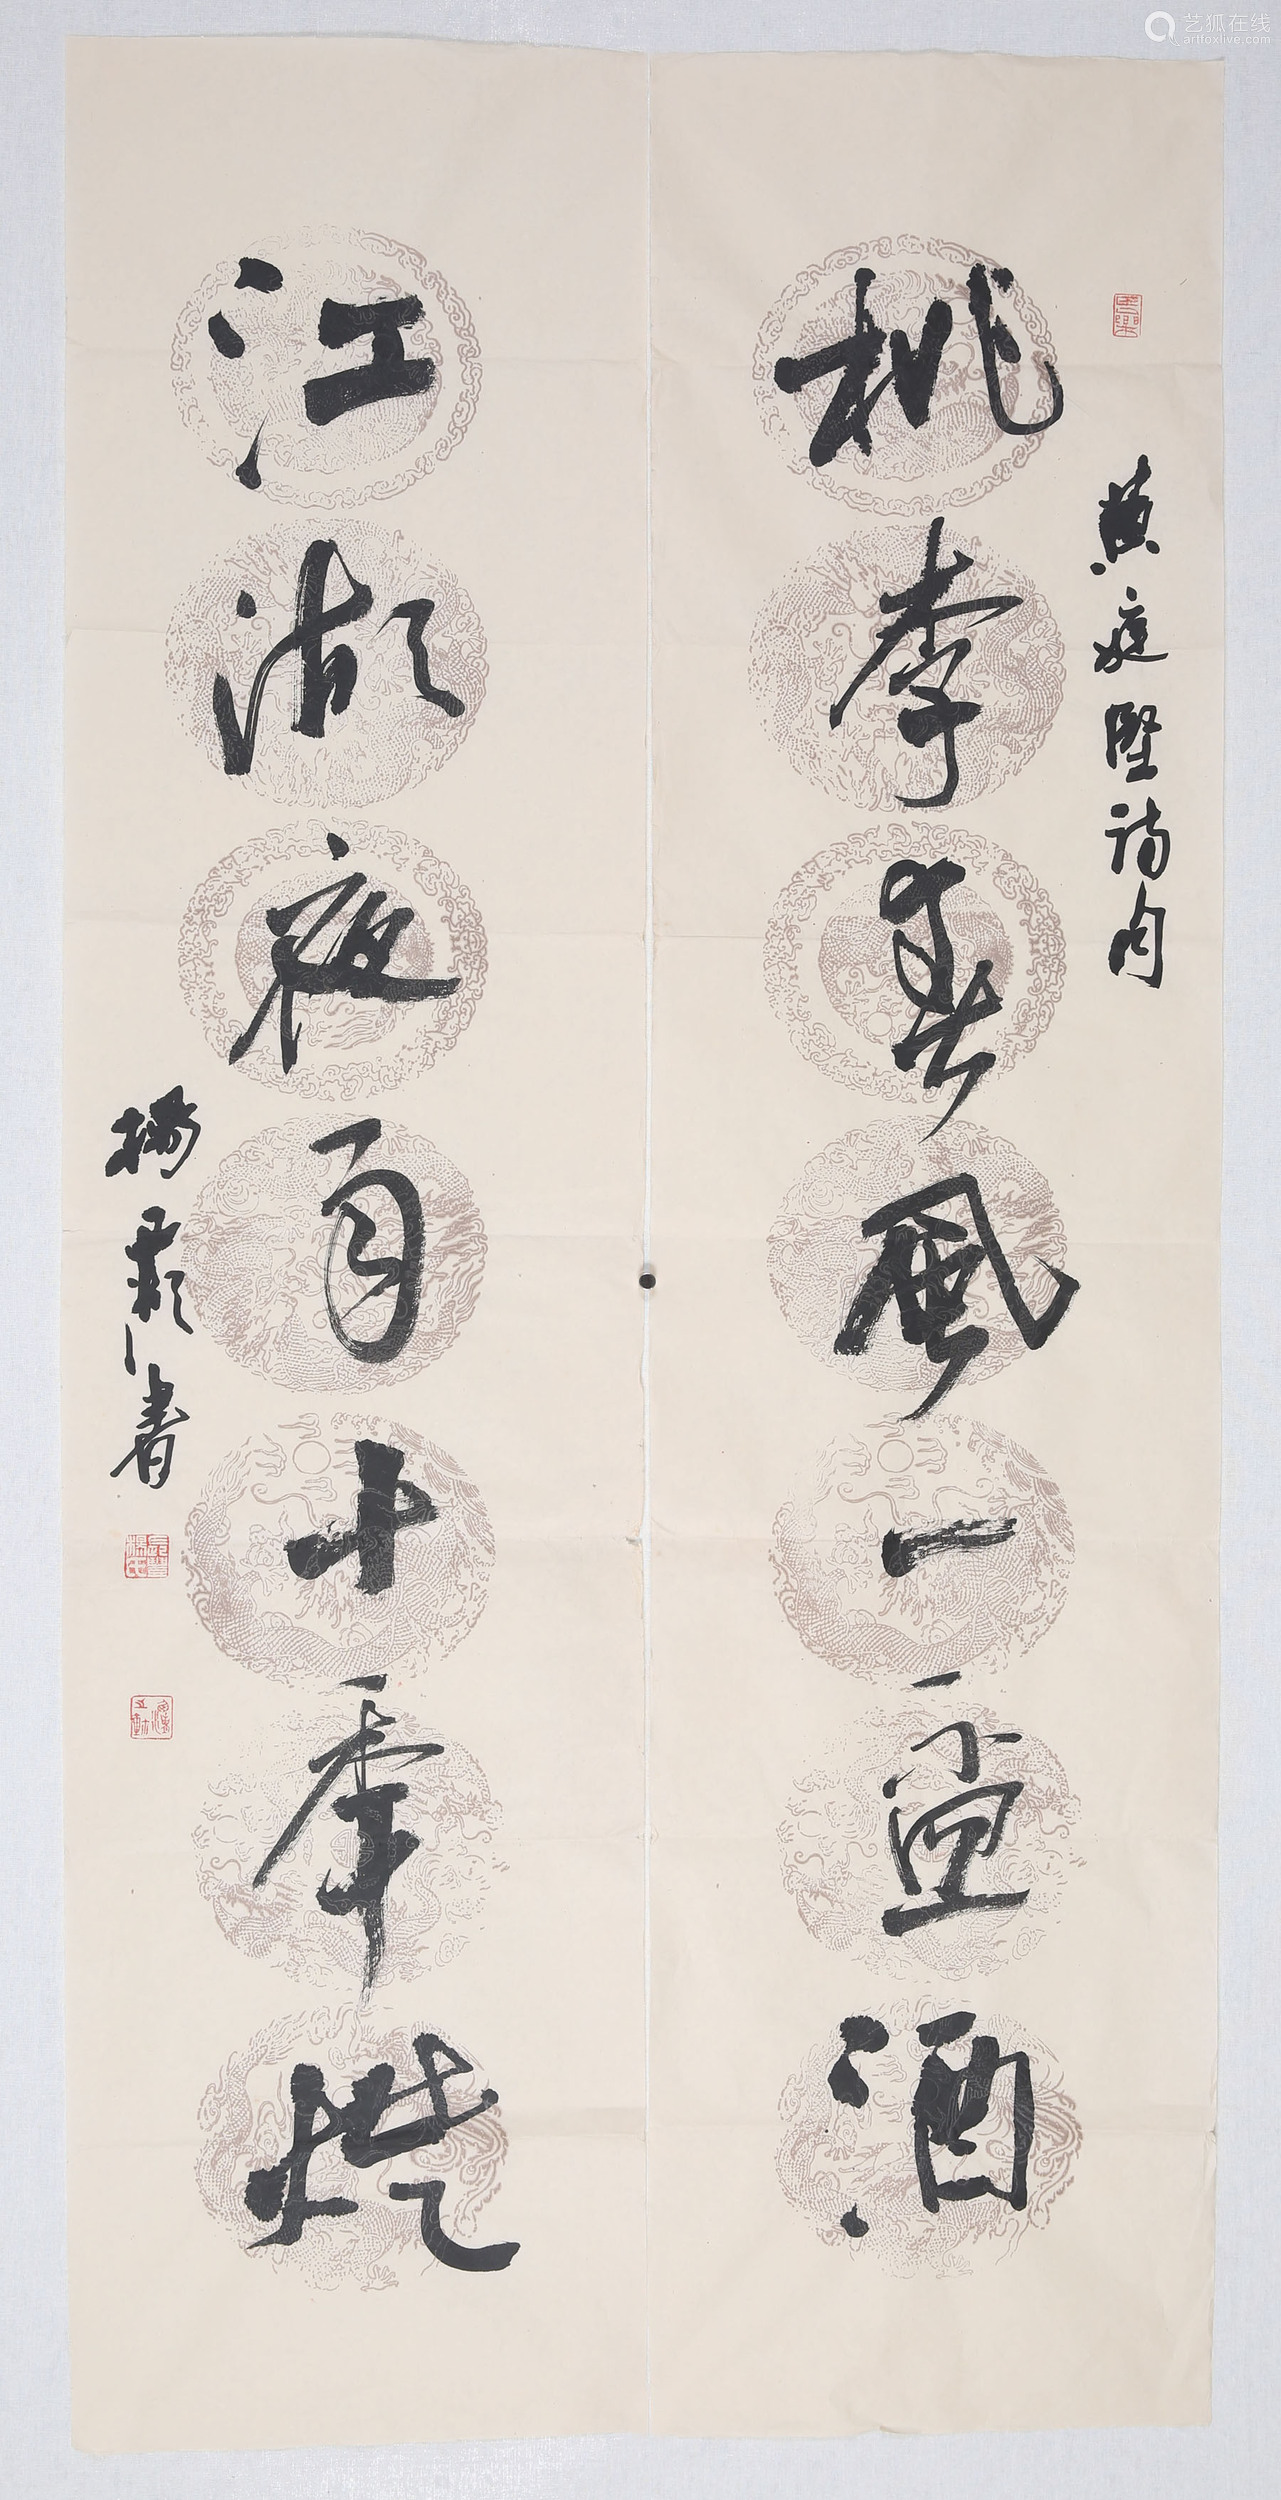 黄庭堅詩句
桃李春風一盃酒
江湖夜雨十年燈
楊
書
艺狐在线
artfoxlive.com